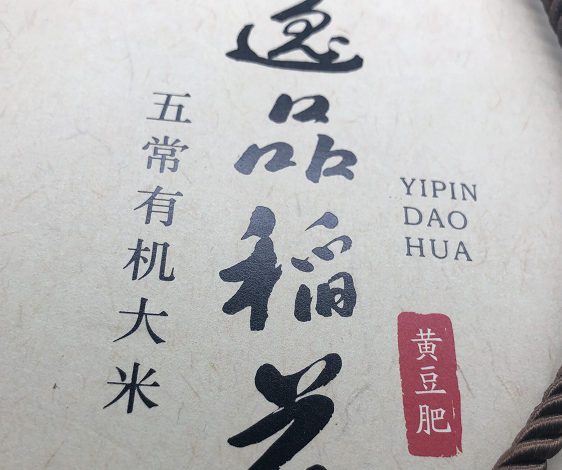 逸品稻花
五常有机大米
YIPIN
DAO
HUA
黄豆肥